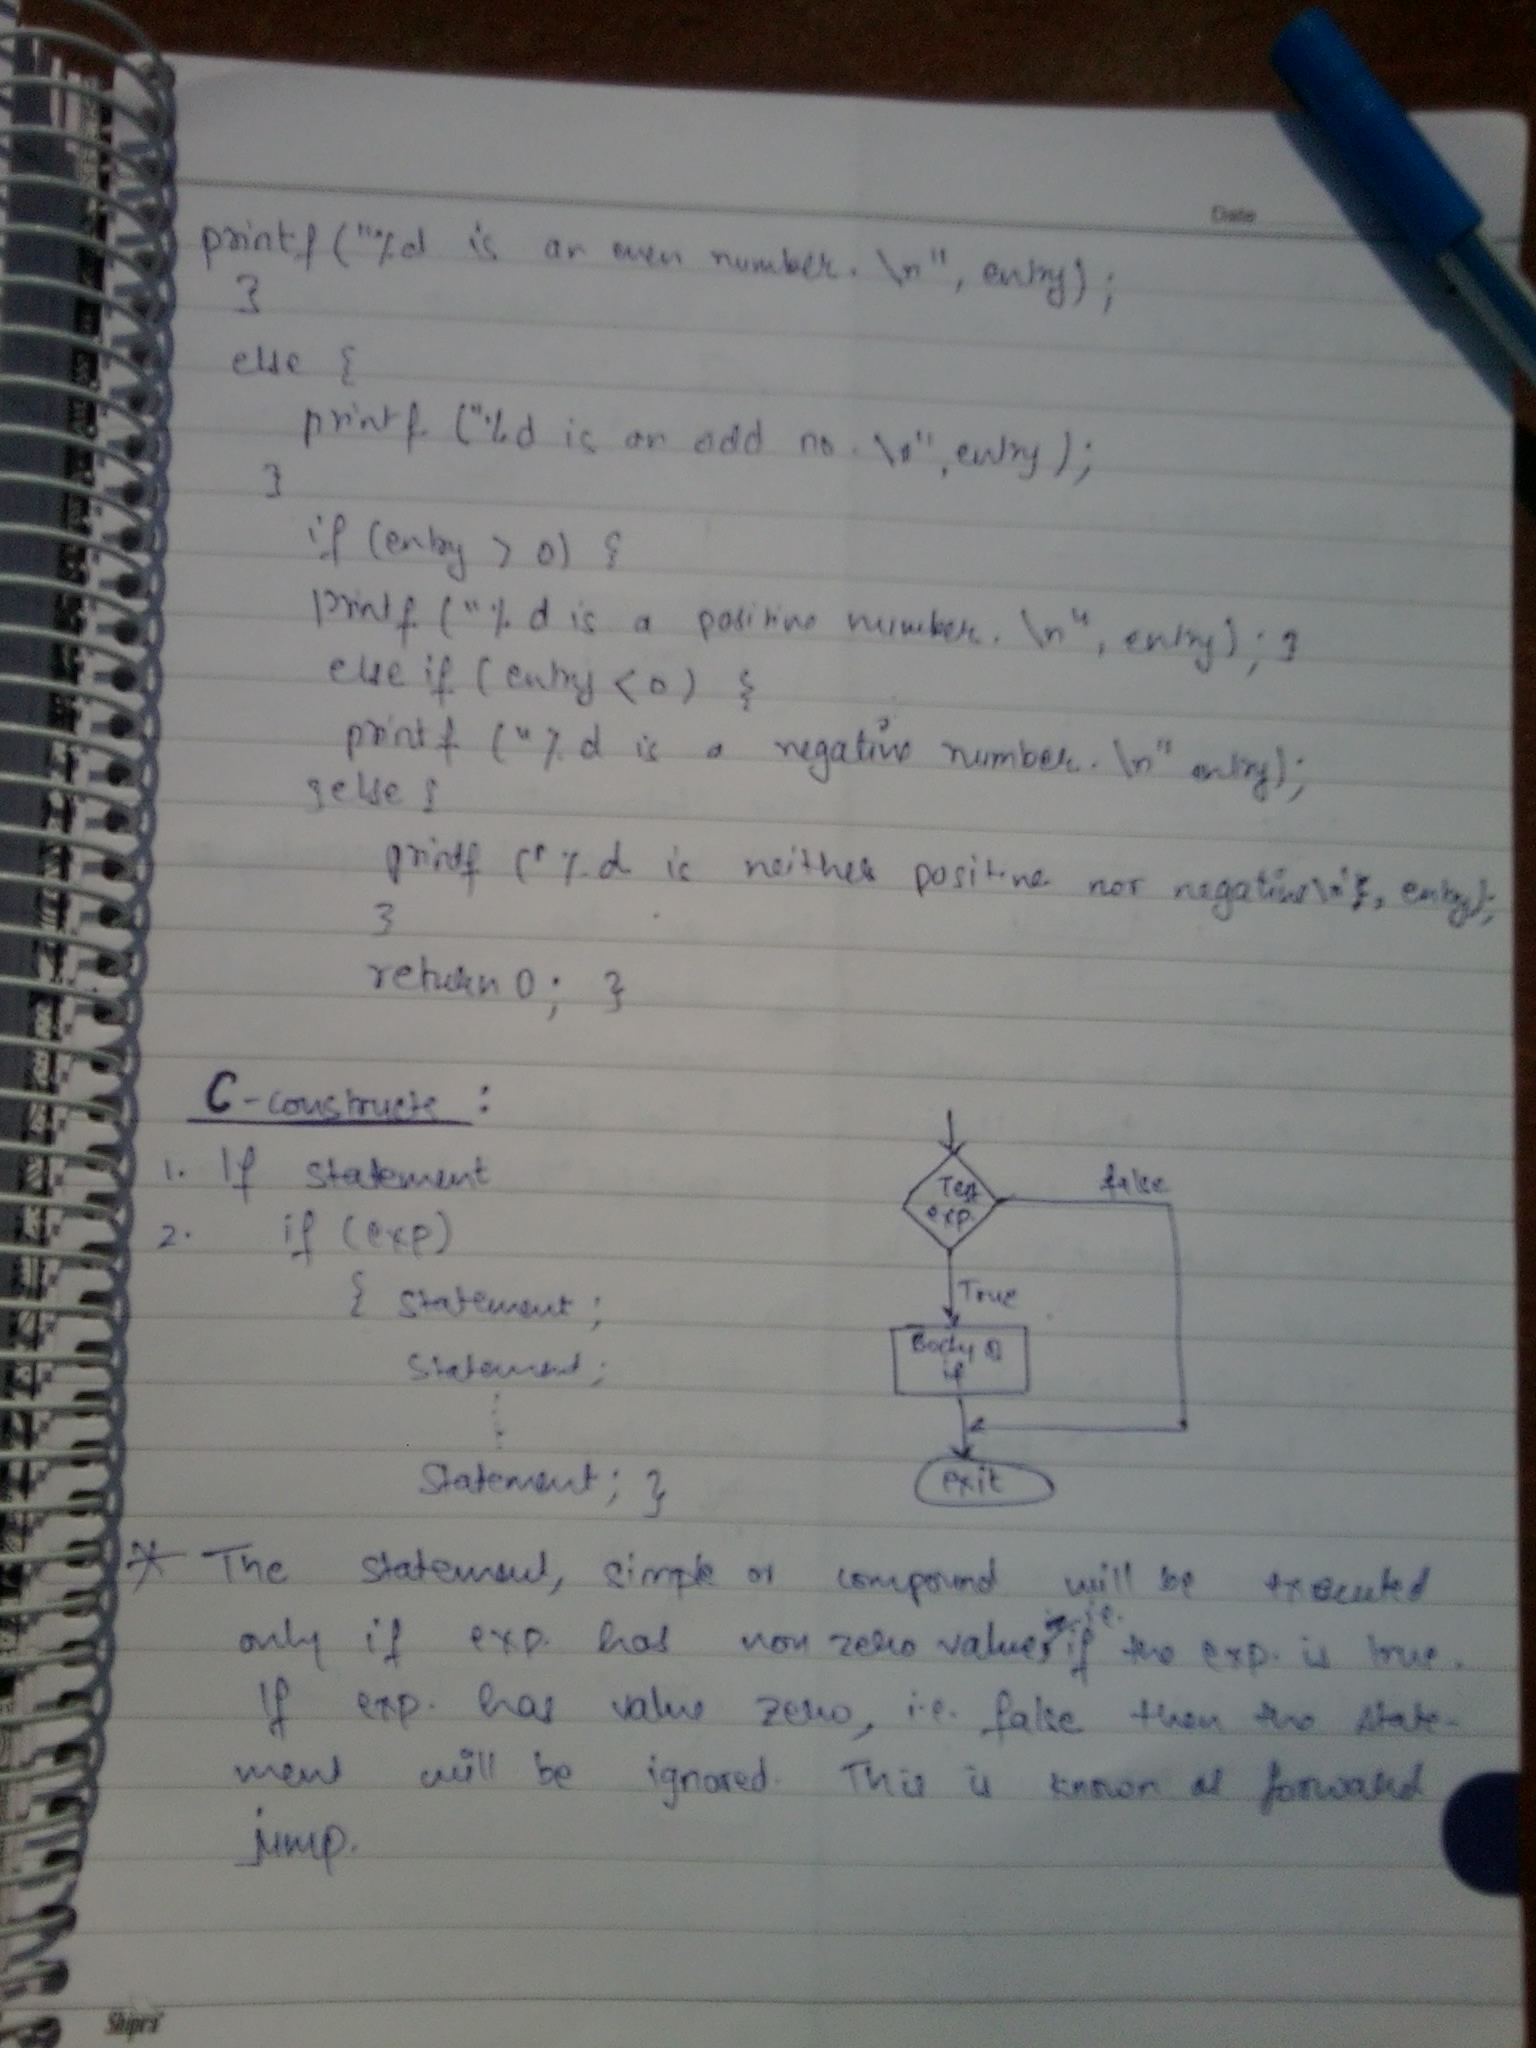 Date
printf ("%d is an even number. \n", entry);
}
else {
printf ("%d is an odd no. \n", entry);
}
if (entry > 0) {
printf ("%d is a positive number. \n", entry); }
else if (entry < 0) {
printf ("%d is a negative number. \n" entry);
} else {
printf ("%d is neither positive nor negative\n", entry);
}
return 0; }
C-constructs :
1. If statement
2. if (exp)
{ statement;
statement;
statement; }
Test
exp.
false
True
Body of
if
exit
* The statement, simple or compound will be executed
only if exp. has non zero values i.e. if the exp. is true.
If exp. has value zero, i.e. false then the state-
ment will be ignored. This is known as forward
jump.
Shipra